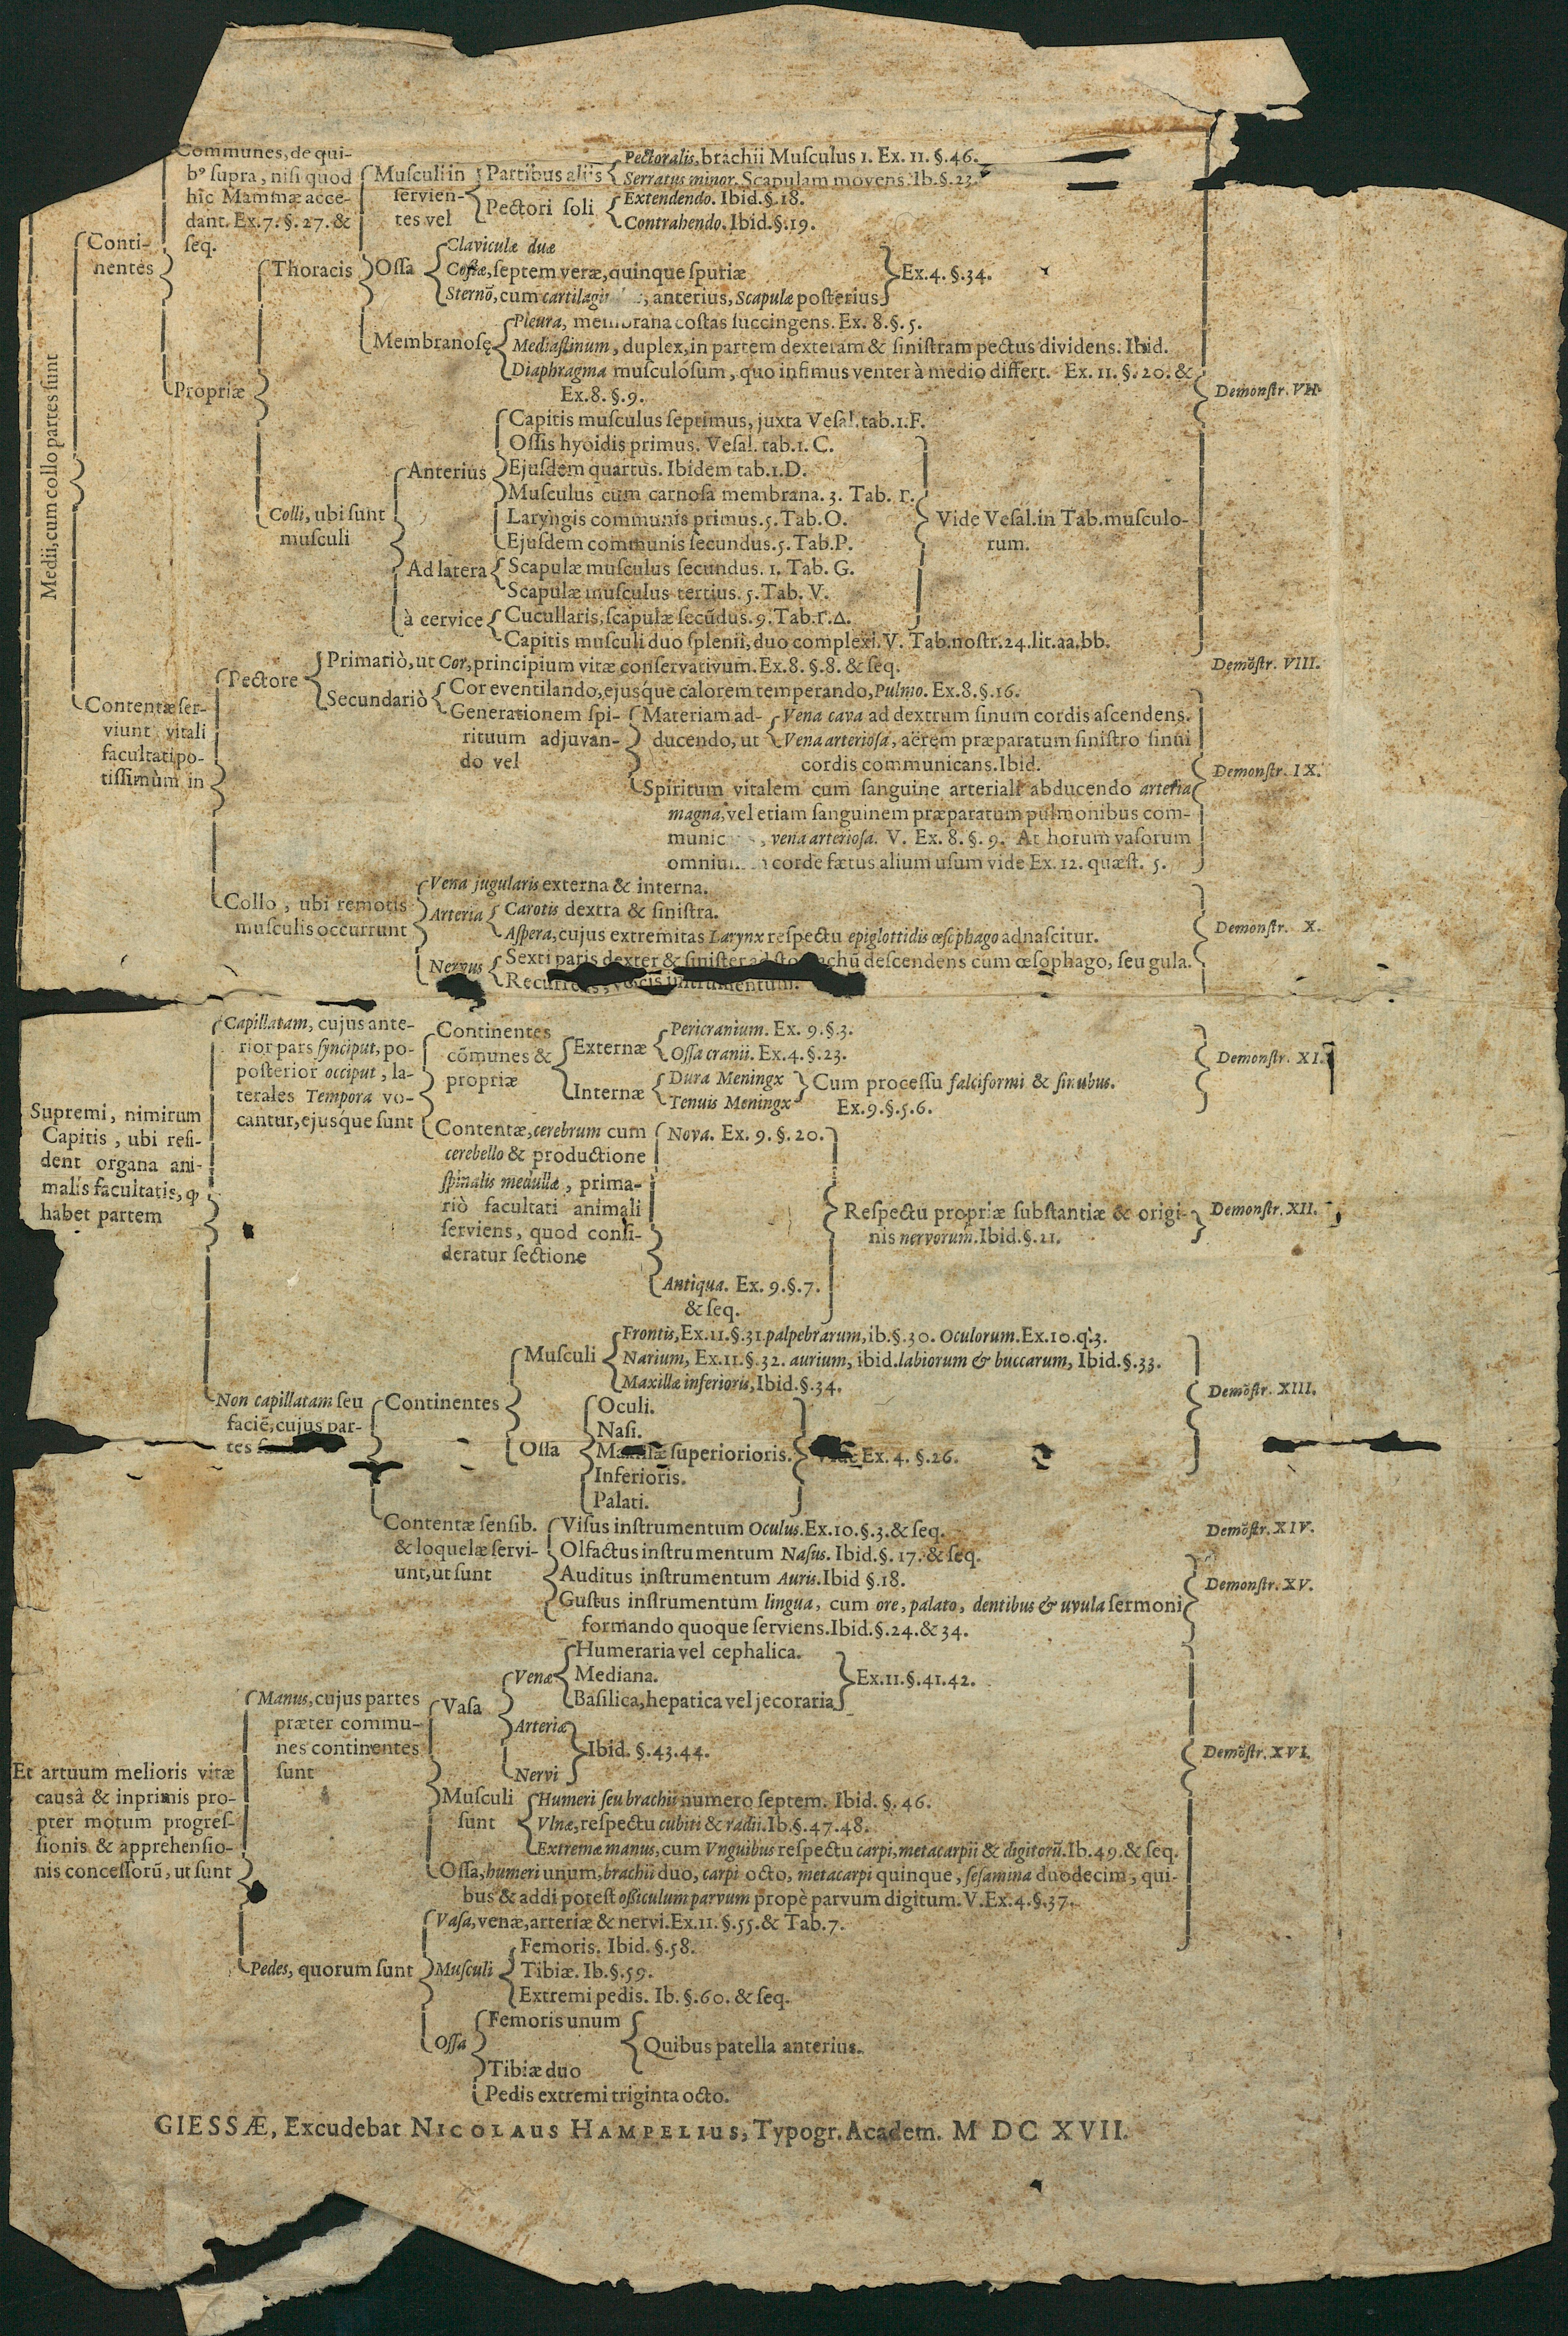 Communes, de qui-
bꝰ ſupra, niſi quod
hîc Mammæ acce-
dant. Ex.7.§.27.&
ſeq.
Muſculi in
ſervien-
tes vel
Partibus aliis
Pectoralis, brachii Muſculus 1. Ex. 11. §. 46.
Serratus minor. Scapulam movens. Ib. §. 23.
Pectori ſoli
Extendendo. Ibid. §. 18.
Contrahendo. Ibid. §. 19.
Conti-
nentes
Thoracis
Oſſa
Claviculæ duæ
Coſtæ, ſeptem veræ, quinque ſpuriæ
Sternō, cum anterius, Scapulæ poſterius
Ex.4. §.34.
Membranoſę
Pleura, membrana coſtas ſuccingens. Ex. 8. §. 5.
Mediaſtinum, duplex, in partem dexteram & ſiniſtram pectus dividens. Ibid.
Diaphragma muſculoſum, quo infimus venter à medio differt. Ex. 11. §. 20. &
Ex.8. §.9.
Propriæ
Demonſtr. VII.
Medii, cum collo partes ſunt
Colli, ubi ſunt
muſculi
Anterius
Capitis muſculus ſeptimus, juxta Veſal. tab.1.F.
Oſſis hyoidis primus. Veſal. tab.1. C.
Ejuſdem quartus. Ibidem tab.1.D.
Muſculus cum carnoſa membrana. 3. Tab. Γ.
Laryngis communis primus.5. Tab.O.
Ejuſdem communis ſecundus.5. Tab.P.
Ad latera
Scapulæ muſculus ſecundus. 1. Tab. G.
Scapulæ muſculus tertius. 5. Tab. V.
à cervice
Cucullaris, ſcapulæ ſecūdus. 9. Tab.Γ.Δ.
Capitis muſculi duo ſplenii, duo complexi. V. Tab.noſtr.24.lit.aa.bb.
Vide Veſal. in Tab. muſculo-
rum.
Contentæ ſer-
viunt vitali
facultati po-
tiſſimùm in
Pectore
Primariò, ut Cor, principium vitæ conſervativum. Ex. 8. §. 8. & ſeq.
Demōſtr. VIII.
Secundariò
Cor eventilando, ejusque calorem temperando, Pulmo. Ex. 8. §. 16.
Generationem ſpi-
rituum adjuvan-
do vel
Materiam ad-
ducendo, ut
Vena cava ad dextrum ſinum cordis aſcendens.
Vena arterioſa, aërem præparatum ſiniſtro ſinui
cordis communicans. Ibid.
Spiritum vitalem cum ſanguine arteriali abducendo arteria
magna, vel etiam ſanguinem præparatum pulmonibus com-
munic , vena arterioſa. V. Ex. 8. §. 9. At horum vaſorum
corde fætus alium uſum vide Ex. 12. quæſt. 5.
Demonſtr. IX.
Collo, ubi remotis
muſculis occurrunt
Vena jugularis externa & interna.
Arteria
Carotis dextra & ſiniſtra.
Aſpera, cujus extremitas Larynx reſpectu epiglottidis œſophago adnaſcitur.
Nervus
Sexti paris dexter & ſiniſter ad deſcendens cum œſophago, ſeu gula.
vocis inſtrumentum.
Demonſtr. X.
Supremi, nimirum
Capitis, ubi reſi-
dent organa ani-
malis facultatis, ꝙ
habet partem
Capillatam, cujus ante-
rior pars ſynciput, po-
poſterior occiput, la-
terales Tempora vo-
cantur, ejusque ſunt
Continentes
cōmunes &
propriæ
Externæ
Pericranium. Ex. 9. §. 3.
Oſſa cranii. Ex. 4. §. 23.
Internæ
Dura Meningx
Tenuis Meningx
Cum proceſſu falciformi & ſinubus.
Ex.9. §.5.6.
Demonſtr. XI.
Contentæ, cerebrum cum
cerebello & productione
ſpinalis medullæ, prima-
riò facultati animali
ſerviens, quod conſi-
deratur ſectione
Nova. Ex. 9. §. 20.
Antiqua. Ex. 9. §. 7.
& ſeq.
Reſpectu propriæ ſubſtantiæ & origi-
nis nervorum. Ibid. §. 21.
Demonſtr. XII.
Non capillatam ſeu
faciē, cujus par-
tes
Continentes
Muſculi
Frontis, Ex.11.§.31. palpebrarum, ib.§.30. Oculorum. Ex.10.q.3.
Narium, Ex.11.§.32. aurium, ibid. labiorum & buccarum, Ibid.§.33.
Maxillæ inferioris, Ibid.§.34.
Oſſa
Oculi.
Naſi.
Maxillæ ſuperiorioris.
Inferioris.
Palati.
Ex. 4. §. 26.
Demōſtr. XIII.
Contentæ ſenſib.
& loquelæ ſervi-
unt, ut ſunt
Viſus inſtrumentum Oculus. Ex.10. §.3. & ſeq.
Olfactus inſtrumentum Naſus. Ibid. §. 17. & ſeq.
Auditus inſtrumentum Auris. Ibid §.18.
Guſtus inſtrumentum lingua, cum ore, palato, dentibus & uvula ſermoni
formando quoque ſerviens. Ibid. §. 24. & 34.
Demōſtr. XIV.
Demonſtr. XV.
Et artuum melioris vitæ
causâ & inprimis pro-
pter motum progreſ-
ſionis & apprehenſio-
nis conceſſorū, ut ſunt
Manus, cujus partes
præter commu-
nes continentes
ſunt
Vaſa
Venæ
Humeraria vel cephalica.
Mediana.
Baſilica, hepatica vel jecoraria
Ex.11.§.41.42.
Arteriæ
Nervi
Ibid. §.43.44.
Muſculi
ſunt
Humeri ſeu brachii numero ſeptem. Ibid. §. 46.
Vlnæ, reſpectu cubiti & radii. Ib.§.47.48.
Extremæ manus, cum Vnguibus reſpectu carpi, metacarpii & digitorū. Ib.49. & ſeq.
Oſſa, humeri unum, brachii duo, carpi octo, metacarpi quinque, ſeſamina duodecim, qui-
bus & addi poteſt oſſiculum parvum propè parvum digitum. V. Ex. 4. §. 37.
Demōſtr. XVI.
Pedes, quorum ſunt
Vaſa, venæ, arteriæ & nervi. Ex. 11. §. 55. & Tab. 7.
Muſculi
Femoris. Ibid. §. 58.
Tibiæ. Ib. §. 59.
Extremi pedis. Ib. §. 60. & ſeq.
Oſſa
Femoris unum
Tibiæ duo
Quibus patella anterius.
Pedis extremi triginta octo.
GIESSÆ, Excudebat NICOLAUS HAMPELIUS, Typogr. Academ. M DC XVII.